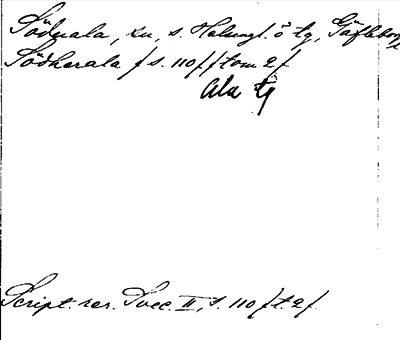 Söduala, sn, s. Helsingl. ö tg, Gäfleborg
Södherala / s. 110 / / tom 2 /
Ala tg
Script. rer. Svec. II, s. 110 / t. 2 /.